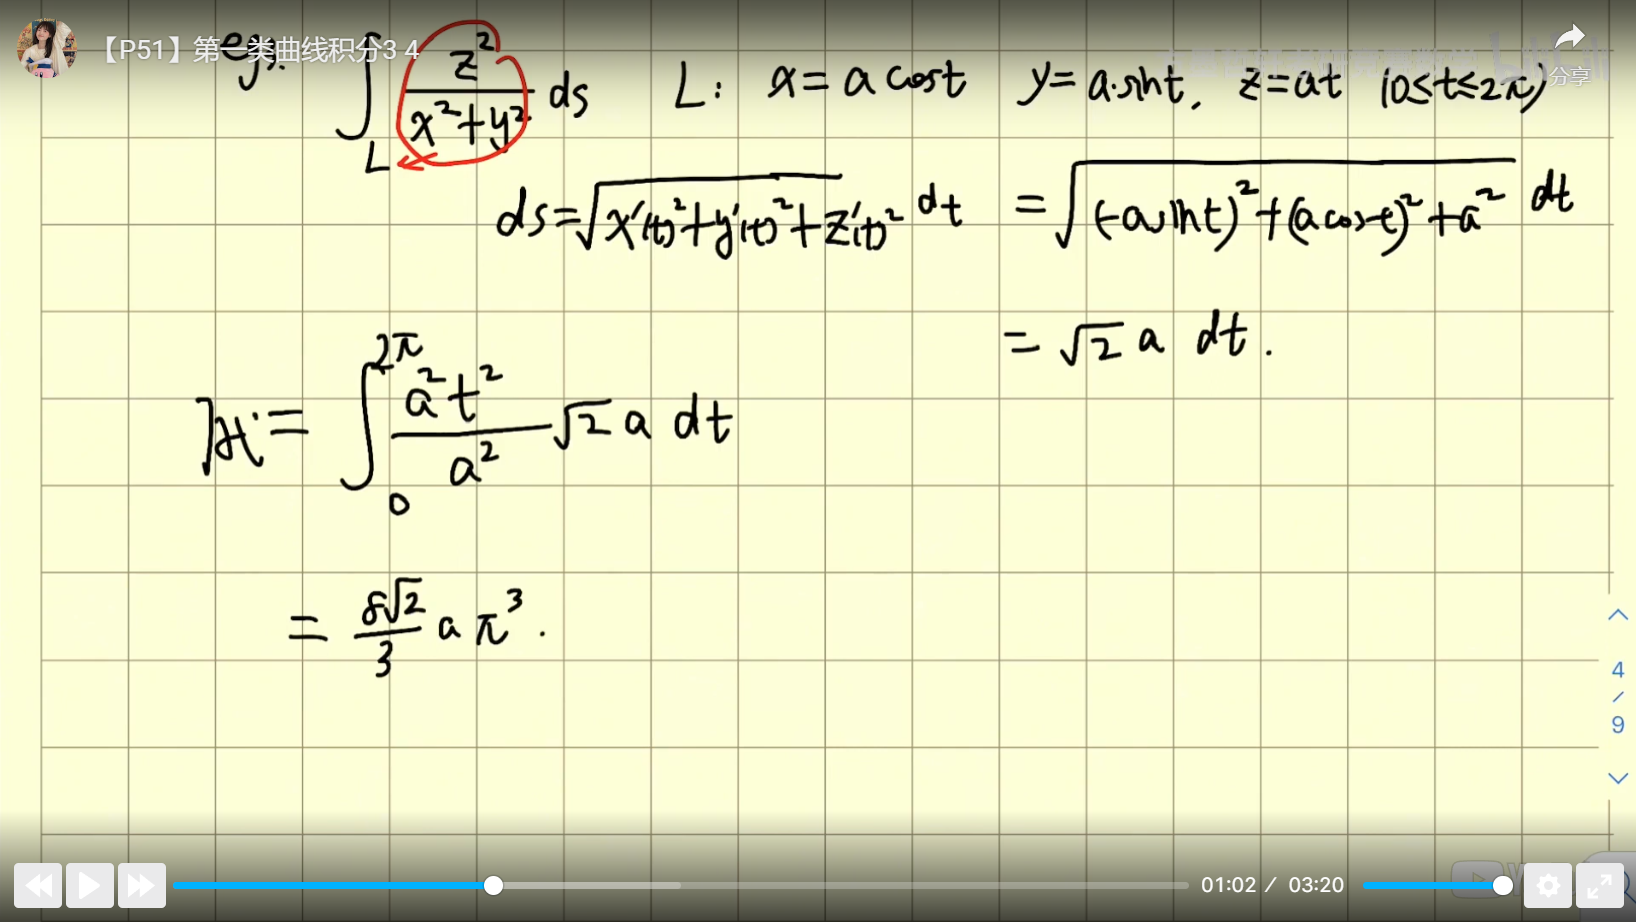 【P51】第一类曲线积分3 4
分享
eg: ∫_L z²/(x²+y²) ds L: x=a cost y=a·sint, z=at (0≤t≤2π)
ds=√(x'(t)²+y'(t)²+z'(t)²) dt = √((-asint)²+(acost)²+a²) dt
= √2 a dt.
原式= ∫_0^{2π} a²t²/a² √2 a dt
= 8√2/3 a π³.
4
/
9
01:02 / 03:20